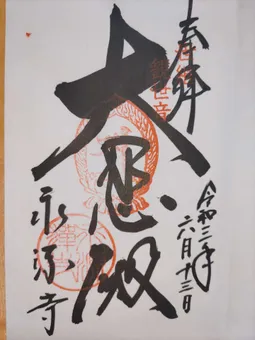 奉拝
大悲殿
令和二年
六月十三日
永源寺